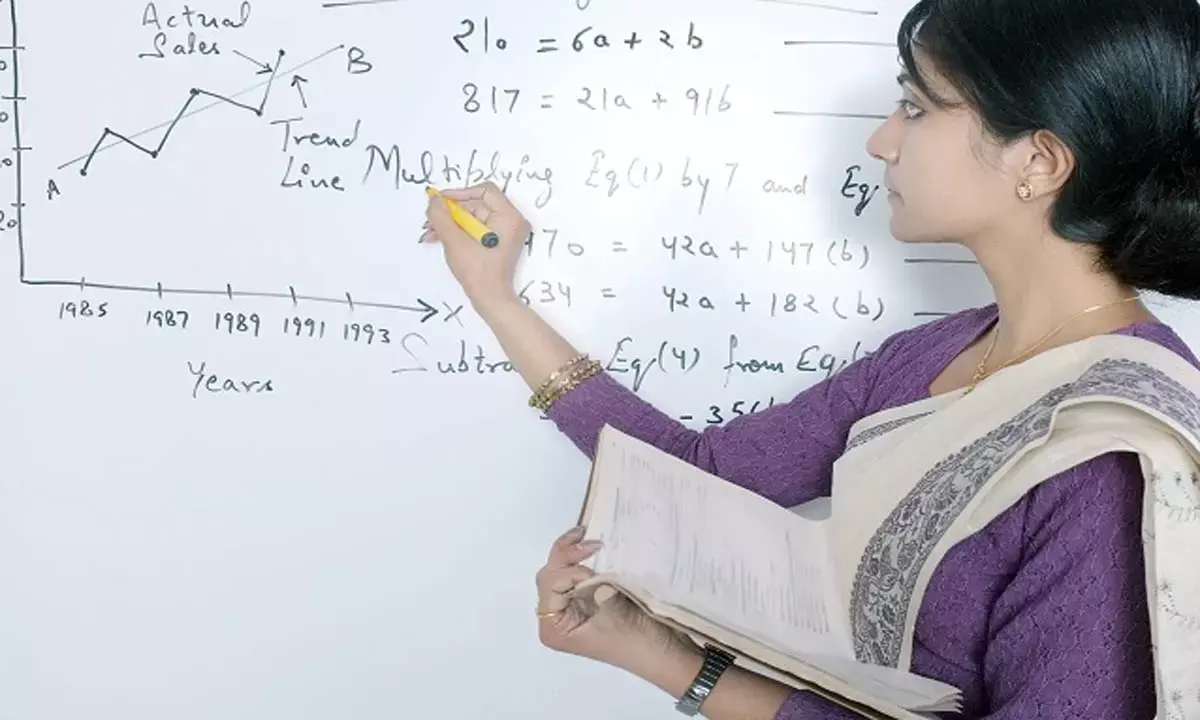 Actual
Sales
B
Trend
Line
A
20
1985 1987 1989 1991 1993 X
Years
210 = 6a + 2b
817 = 21a + 91b
Multiplying Eq(1) by 7 and Eq
470 = 42a + 147(b)
634 = 42a + 182(b)
Subtra Eq(4) from Eq(
- 35(b